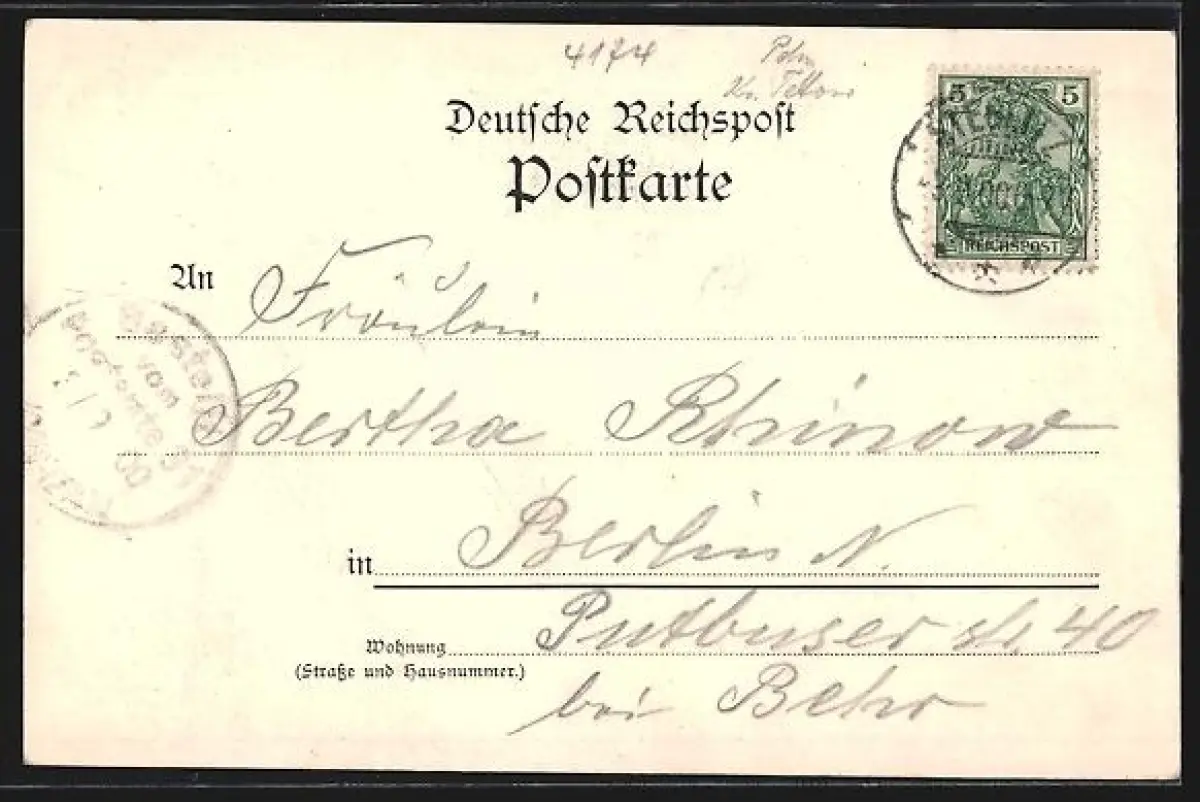 4174
Kr. Teltow
Deutsche Reichspost
Postkarte
5 5
REICHSPOST
An Fräulein
Bestellt
vom
Postamte
Bertha Rhinow
in Berlin N.
Wohnung Putbuser str. 40
(Straße und Hausnummer.)
bei Behr